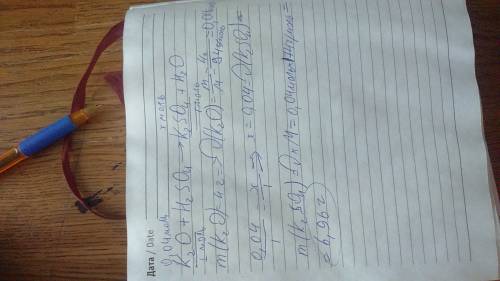 Дата / Date
0,04 моль x моль
K2O + H2SO4 → K2SO4 + H2O
1 моль 1 моль
m(K2O) = 4 г => ν(K2O) = m/M = 4г/94 г/моль = 0,04
0,04/1 = x/1 => x = 0,04 = ν(K2SO4)
m(K2SO4) = ν × M = 0,04 моль × 174 г/моль =
= 6,96 г